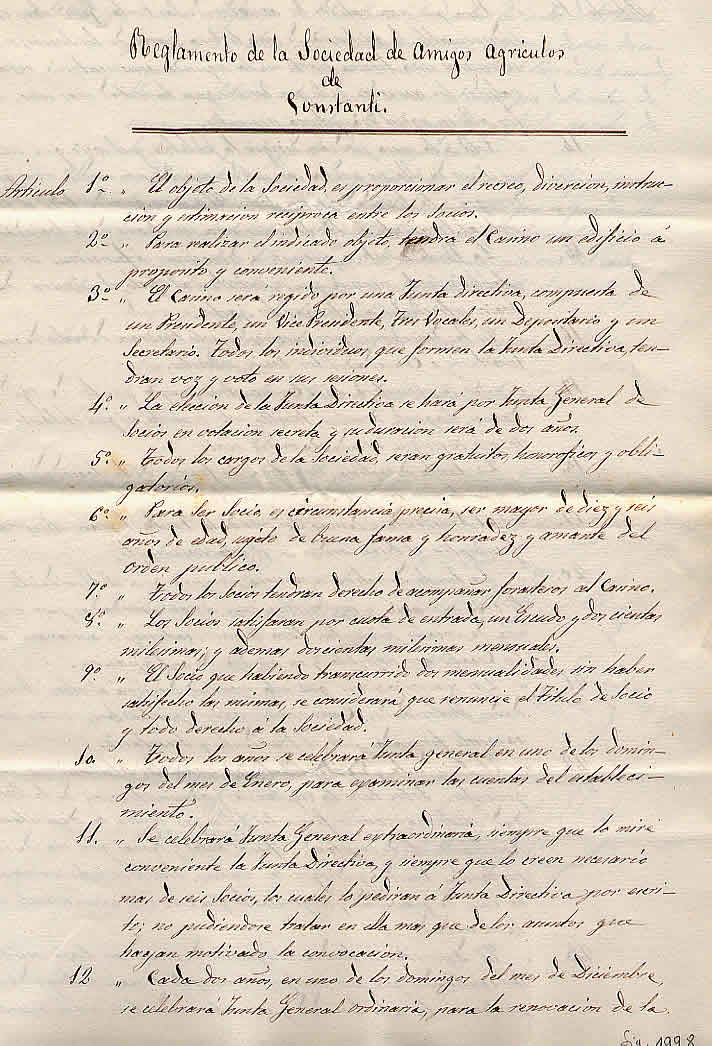 Reglamento de la Sociedad de Amigos Agriculos
de
Constanti.
Articulo 1º " El objeto de la Sociedad, es proporcionar el recreo, diversion, instruc-
cion y estimacion reciproca entre los socios.
2º " Para realizar el indicado objeto, tendrá el Casino un edificio á
proposito y conveniente.
3º " El Casino será regido por una Junta directiva, compuesta de
un Presidente, un Vice Presidente, Tres Vocales, un Depositario y un
Secretario. Todos los individuos, que formen la Junta Directiva, ten-
dran voz y voto en sus sesiones.
4º " La eleccion de la Junta Directiva se hará por Junta General de
Socios en votacion secreta y su duracion será de dos años.
5º " Todos los cargos de la Sociedad, seran gratuitos, honoroficos y obli-
gatorios.
6º " Para ser Socio es circunstancia precisa, ser mayor de diez y seis
años de edad, sugeto de buena fama y honradez y amante del
orden publico.
7º " Todos los Socios tendran derecho de acompañar forasteros al Casino.
8º " Los Socios satisfaran por cuota de entrada, un Escudo y dos cientas
milesimas; y ademas doscientas milesimas mensuales.
9º " El Socio que habiendo transcurrido dos mensualidades sin haber
satisfecho las mismas, se considerará que renuncie el Titulo de Socio
y todo derecho á la Sociedad.
10. " Todos los años se celebrará Junta general en uno de los domin-
gos del mes de Enero, para examinar las cuentas del estableci-
miento.
11. " Se celebrará Junta General extraordinaria, siempre que lo mire
conveniente la Junta Directiva, y siempre que lo creen necesario
mas de seis Socios, los cuales lo pediran á Junta Directiva por escri-
to; no pudiendose tratar en ella mas que de los asuntos que
hayan motivado la convocacion.
12 " Cada dos años, en uno de los domingos del mes de Diciembre,
se celebrará Junta General ordinaria, para la renovacion de la
1998